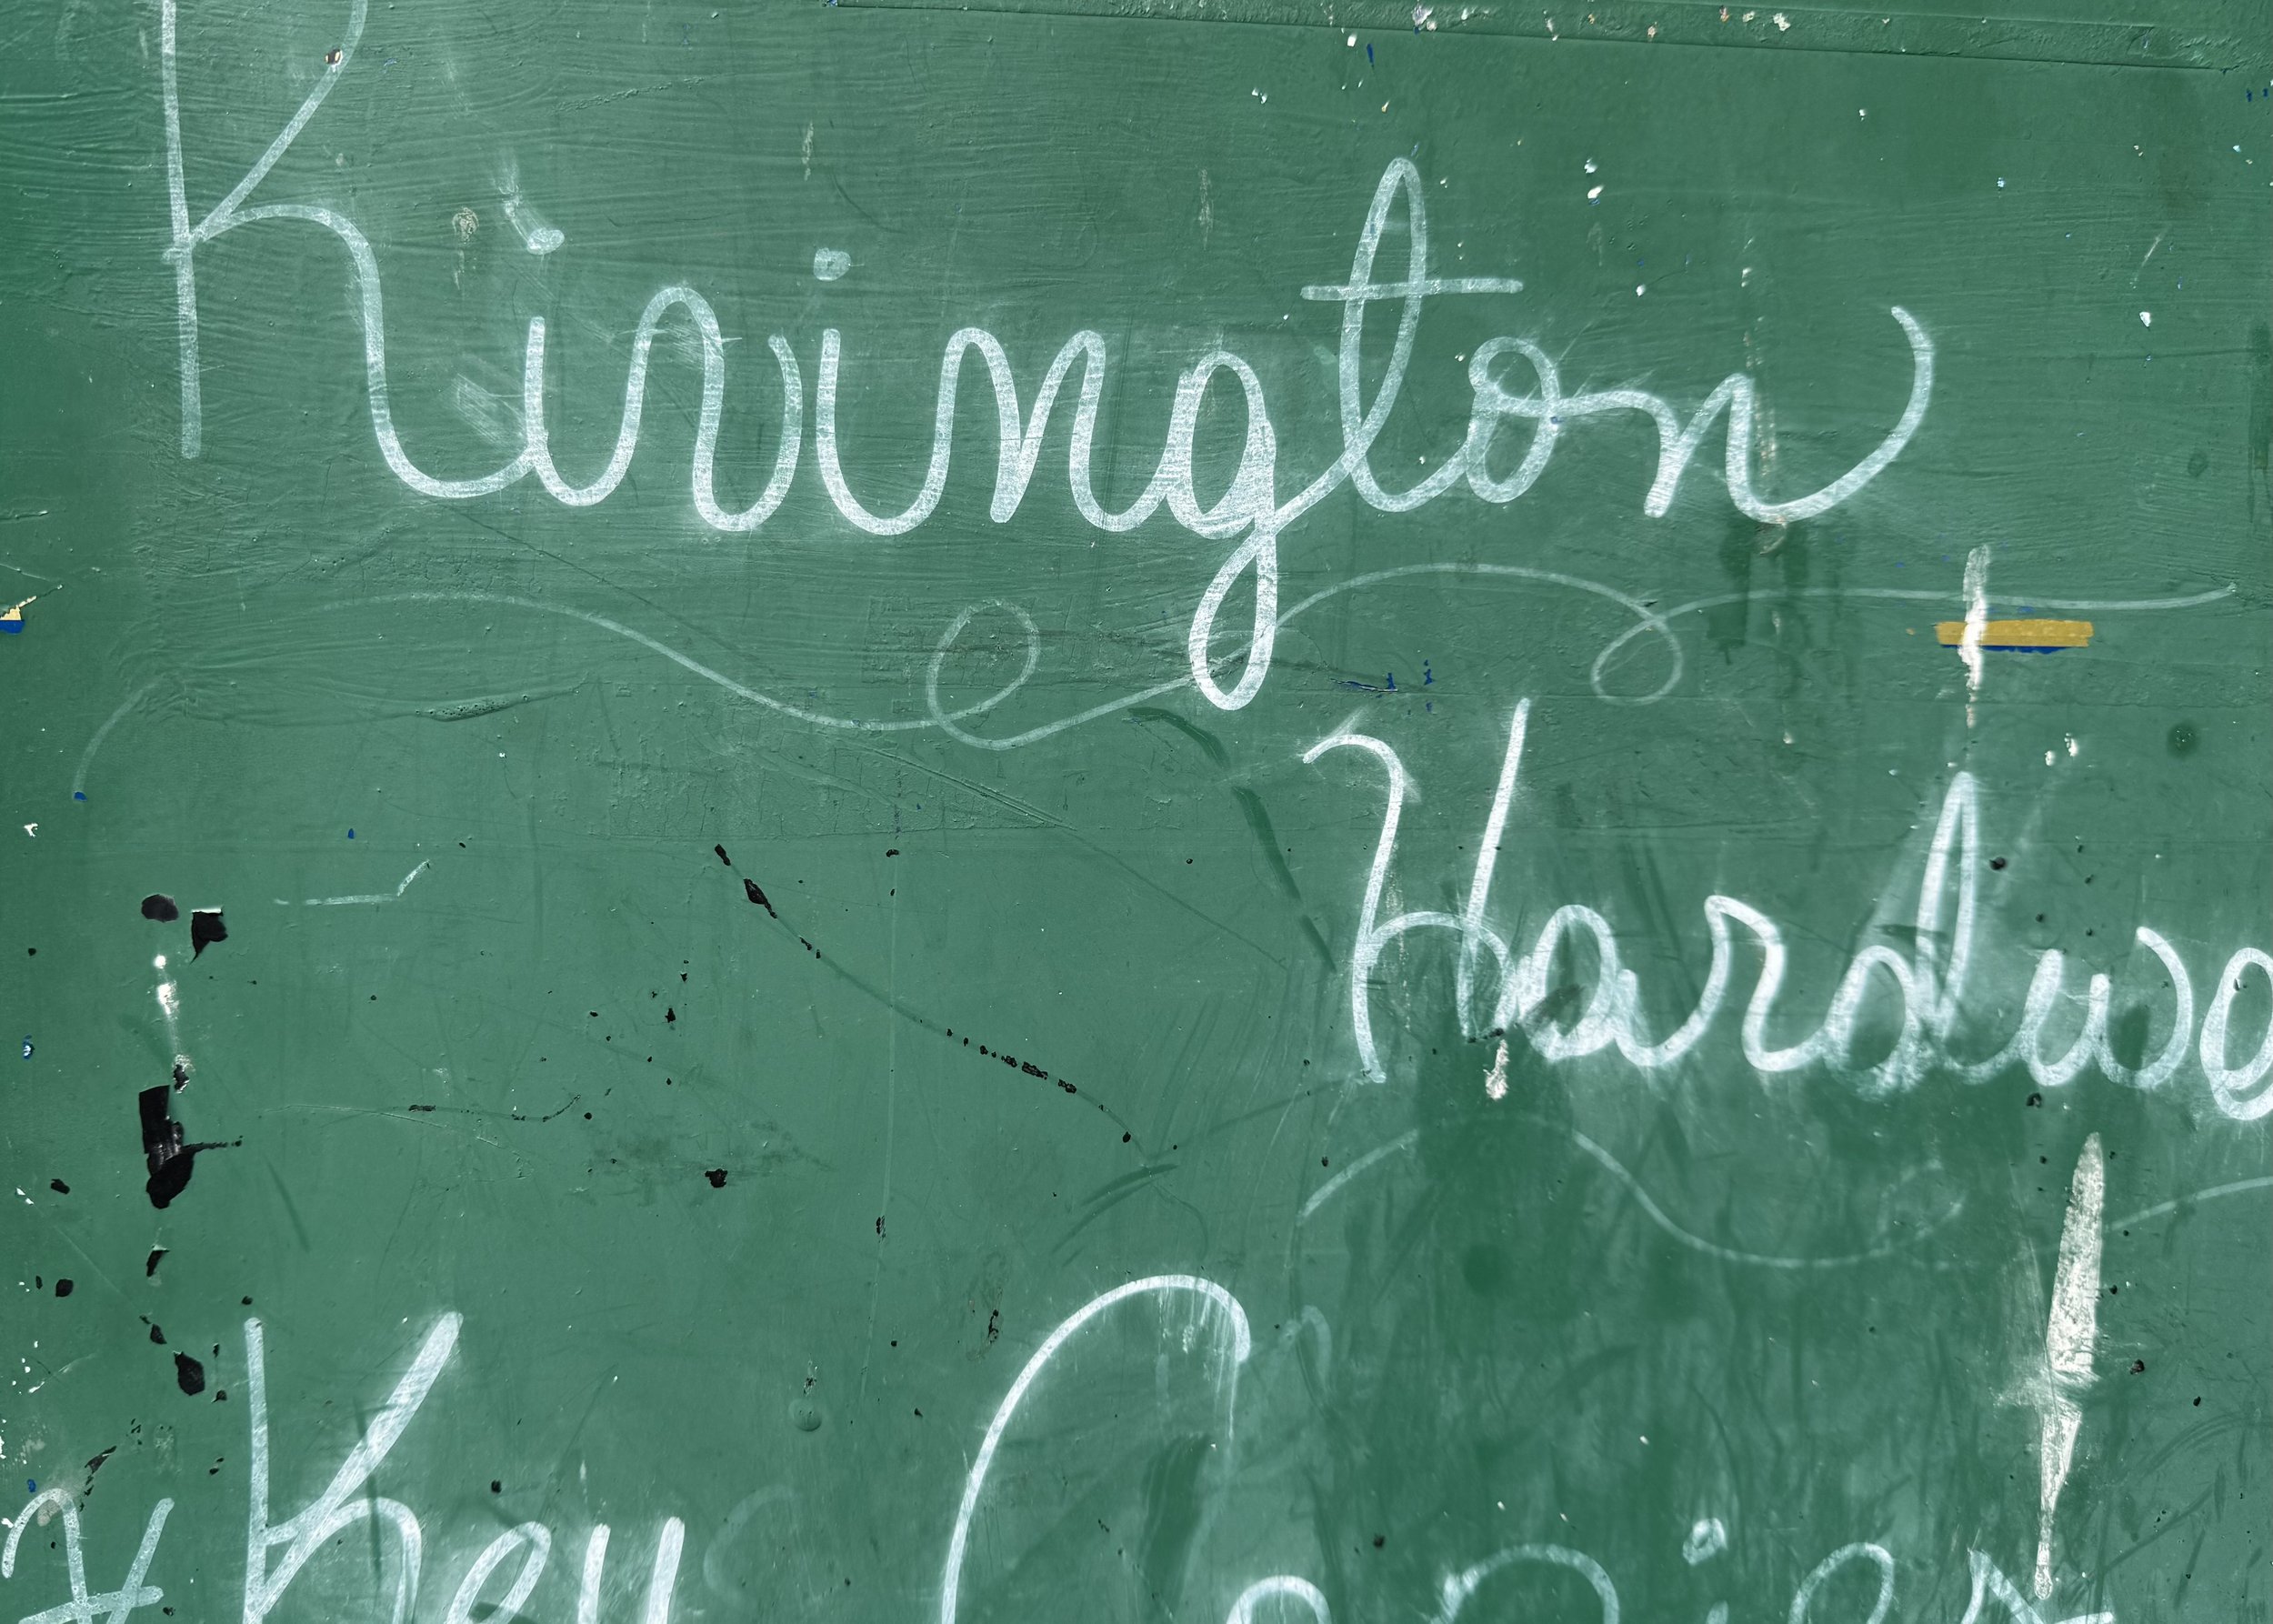 Rivington
Hardwa
* Key Copies